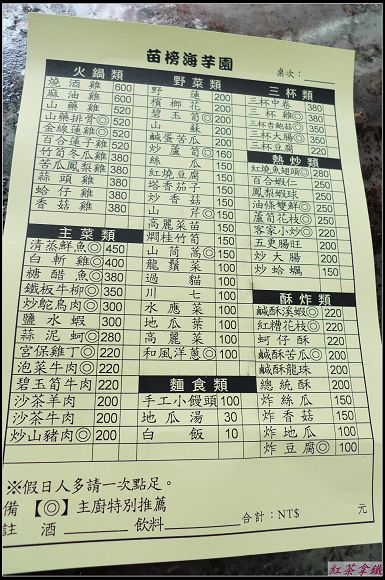 苗榜海芋園
桌次：
火鍋類
燒酒雞 600
麻油雞 600
山藥雞 520
山藥排骨◎ 520
金線蓮雞◎ 520
百合蓮子雞 520
竹筍冬瓜雞 380
苦瓜鳳梨雞 380
蒜頭雞 380
蛤仔雞 380
香菇雞 380
主菜類
清蒸鮮魚◎ 450
白斬雞◎ 400
糖醋魚◎ 380
鐵板牛柳◎ 350
炒鴕鳥肉◎ 300
鹽水蝦 300
蒜泥蚵◎ 280
宮保雞丁◎ 220
泡菜牛肉◎ 220
碧玉筍牛肉 220
沙茶羊肉 200
沙茶牛肉 200
炒山豬肉◎ 200
野菜類
野蓮 200
檳榔花 200
碧玉筍◎ 200
山蘇 200
鹹蛋苦瓜 200
炒蘆筍◎ 160
絲瓜 150
紅燒豆腐 150
塔香茄子 150
炒香菇 150
山芹◎ 150
高麗菜苗 150
燜桂竹筍 150
山茼萵◎ 150
龍鬚菜 100
過貓 100
川七 100
水應菜 100
地瓜葉 100
高麗菜 100
和風洋蔥◎ 100
麵食類
手工小饅頭 100
地瓜湯 30
白飯 10
三杯類
三杯中卷 380
三杯雞◎ 380
三杯杏鮑菇◎ 350
三杯大腸◎ 350
三杯豆腐 220
熱炒類
紅燒魚翅頭◎ 280
百合蝦仁 350
鳳梨蝦球 350
油條雙鮮◎ 350
蘆筍花枝◎ 350
客家小炒◎ 220
五更腸旺 200
炒大腸 200
炒蛤蠣 150
酥炸類
鹹酥溪蝦◎ 220
紅糟花枝◎ 220
蚵仔酥 220
鹹酥苦瓜◎ 220
鹹酥龍珠 220
總統酥 200
炸絲瓜 150
炸香菇 150
炸地瓜 100
炸豆腐◎ 100
※假日人多請一次點足。
備【◎】主廚特別推薦
註 酒 飲料 合計：NT$ 元
紅茶拿鐵